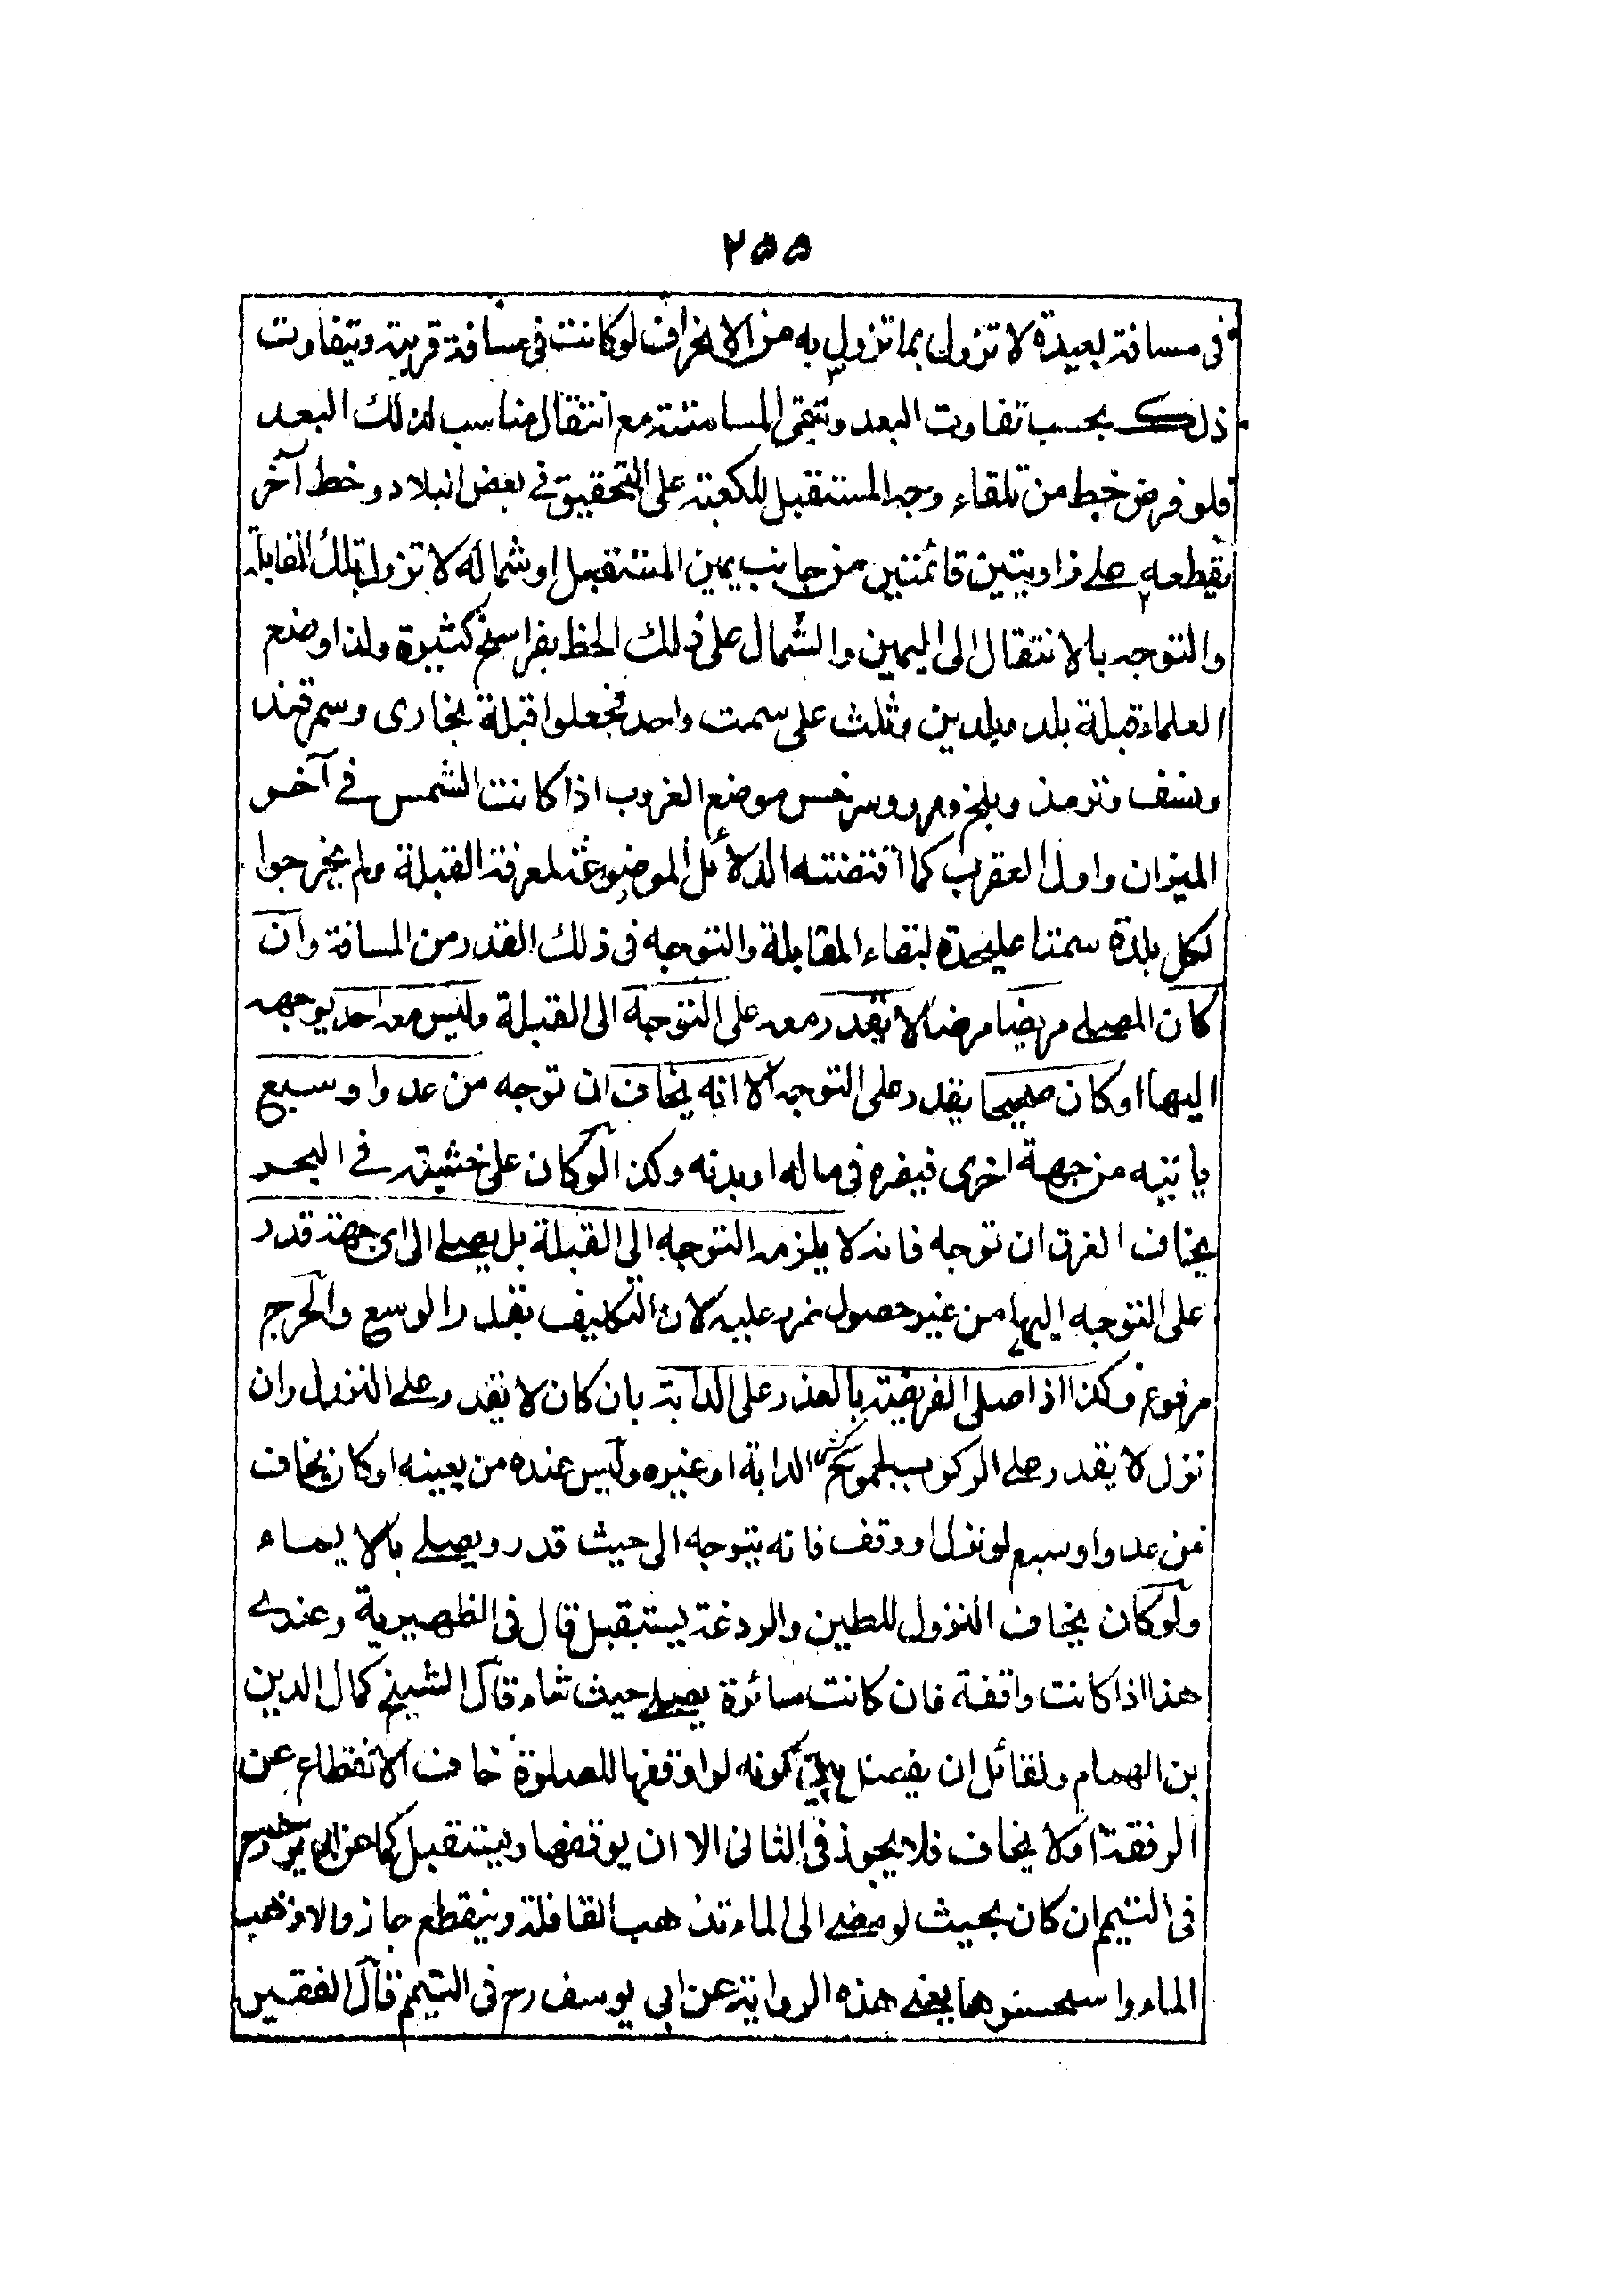 ٢٥٥
فى مسافة بعيدة لا تزول بما تزول به من الانحراف لو كانت فى مسافة قريبة ويتفاوت
ذلك بحسب تفاوت البعد وتبقى المسامتة مع انتقال مناسب لذلك البعد
فلو فرض خط من تلقاء وجه المستقبل للكعبة على التحقيق فى بعض البلاد وخط آخر
يقطعه على زاويتين قائمتين من جانب يمين المستقبل او شماله لا تزول تلك المقابلة
والتوجه بالانتقال الى اليمين والشمال على ذلك الخط بفراسخ كثيرة ولذا وضع
العلماء قبلة بلد وبلدين وثلث على سمت واحد فجعلوا قبلة بخارى وسمرقند
ونسف وترمذ وبلخ ومرو وسرخس موضع الغروب اذا كانت الشمس فى آخر
الميزان واول العقرب كما اقتضته الدلائل الموضوعة لمعرفة القبلة ولم يخرجوا
لكل بلدة سمتا عليحدة لبقاء المقابلة والتوجه فى ذلك القدر من المسافة وان
كان المصلى مريضا مرضا لا يقدر معه على التوجه الى القبلة وليس معه احد يوجهه
اليها او كان صحيحا يقدر على التوجه الا انه يخاف ان توجه من عدو او سبع
ياتيه من جهة اخرى فيضره فى ماله او بدنه وكذا لو كان على خشبة فى البحر
يخاف الغرق ان توجه فانه لا يلزمه التوجه الى القبلة بل يصلى الى اى جهة قدر
على التوجه اليها من غير حصول ضرر عليه لان التكليف بقدر الوسع والحرج
مرفوع وكذا اذا صلى الفريضة بالعذر على الدابة بان كان لا يقدر على النزول وان
نزل لا يقدر على الركوب لجموح الدابة او غيره وليس عنده من يعينه او كان يخاف
من عدو او سبع لو نزل او وقف فانه يتوجه الى حيث قدر ويصلى بالايماء
ولو كان يخاف النزول للطين والردغة يستقبل قال فى الظهيرية وعندى
هذا اذا كانت واقفة فان كانت سائرة يصلى حيث شاء قال الشيخ كمال الدين
بن الهمام ولقائل ان يفصل بين كونه لو اوقفها للصلوة خاف الانقطاع عن
الرفقة او لا يخاف فلا يجوز فى الثانى الا ان يوقفها ويستقبل كما عن ابى يوسف رح
فى التيمم ان كان بحيث لو مضى الى الماء تذهب القافلة وينقطع جاز والا ذهب
الماء واستحسنوها يعنى هذه الرواية عن ابى يوسف رح فى التيمم قال الفقير